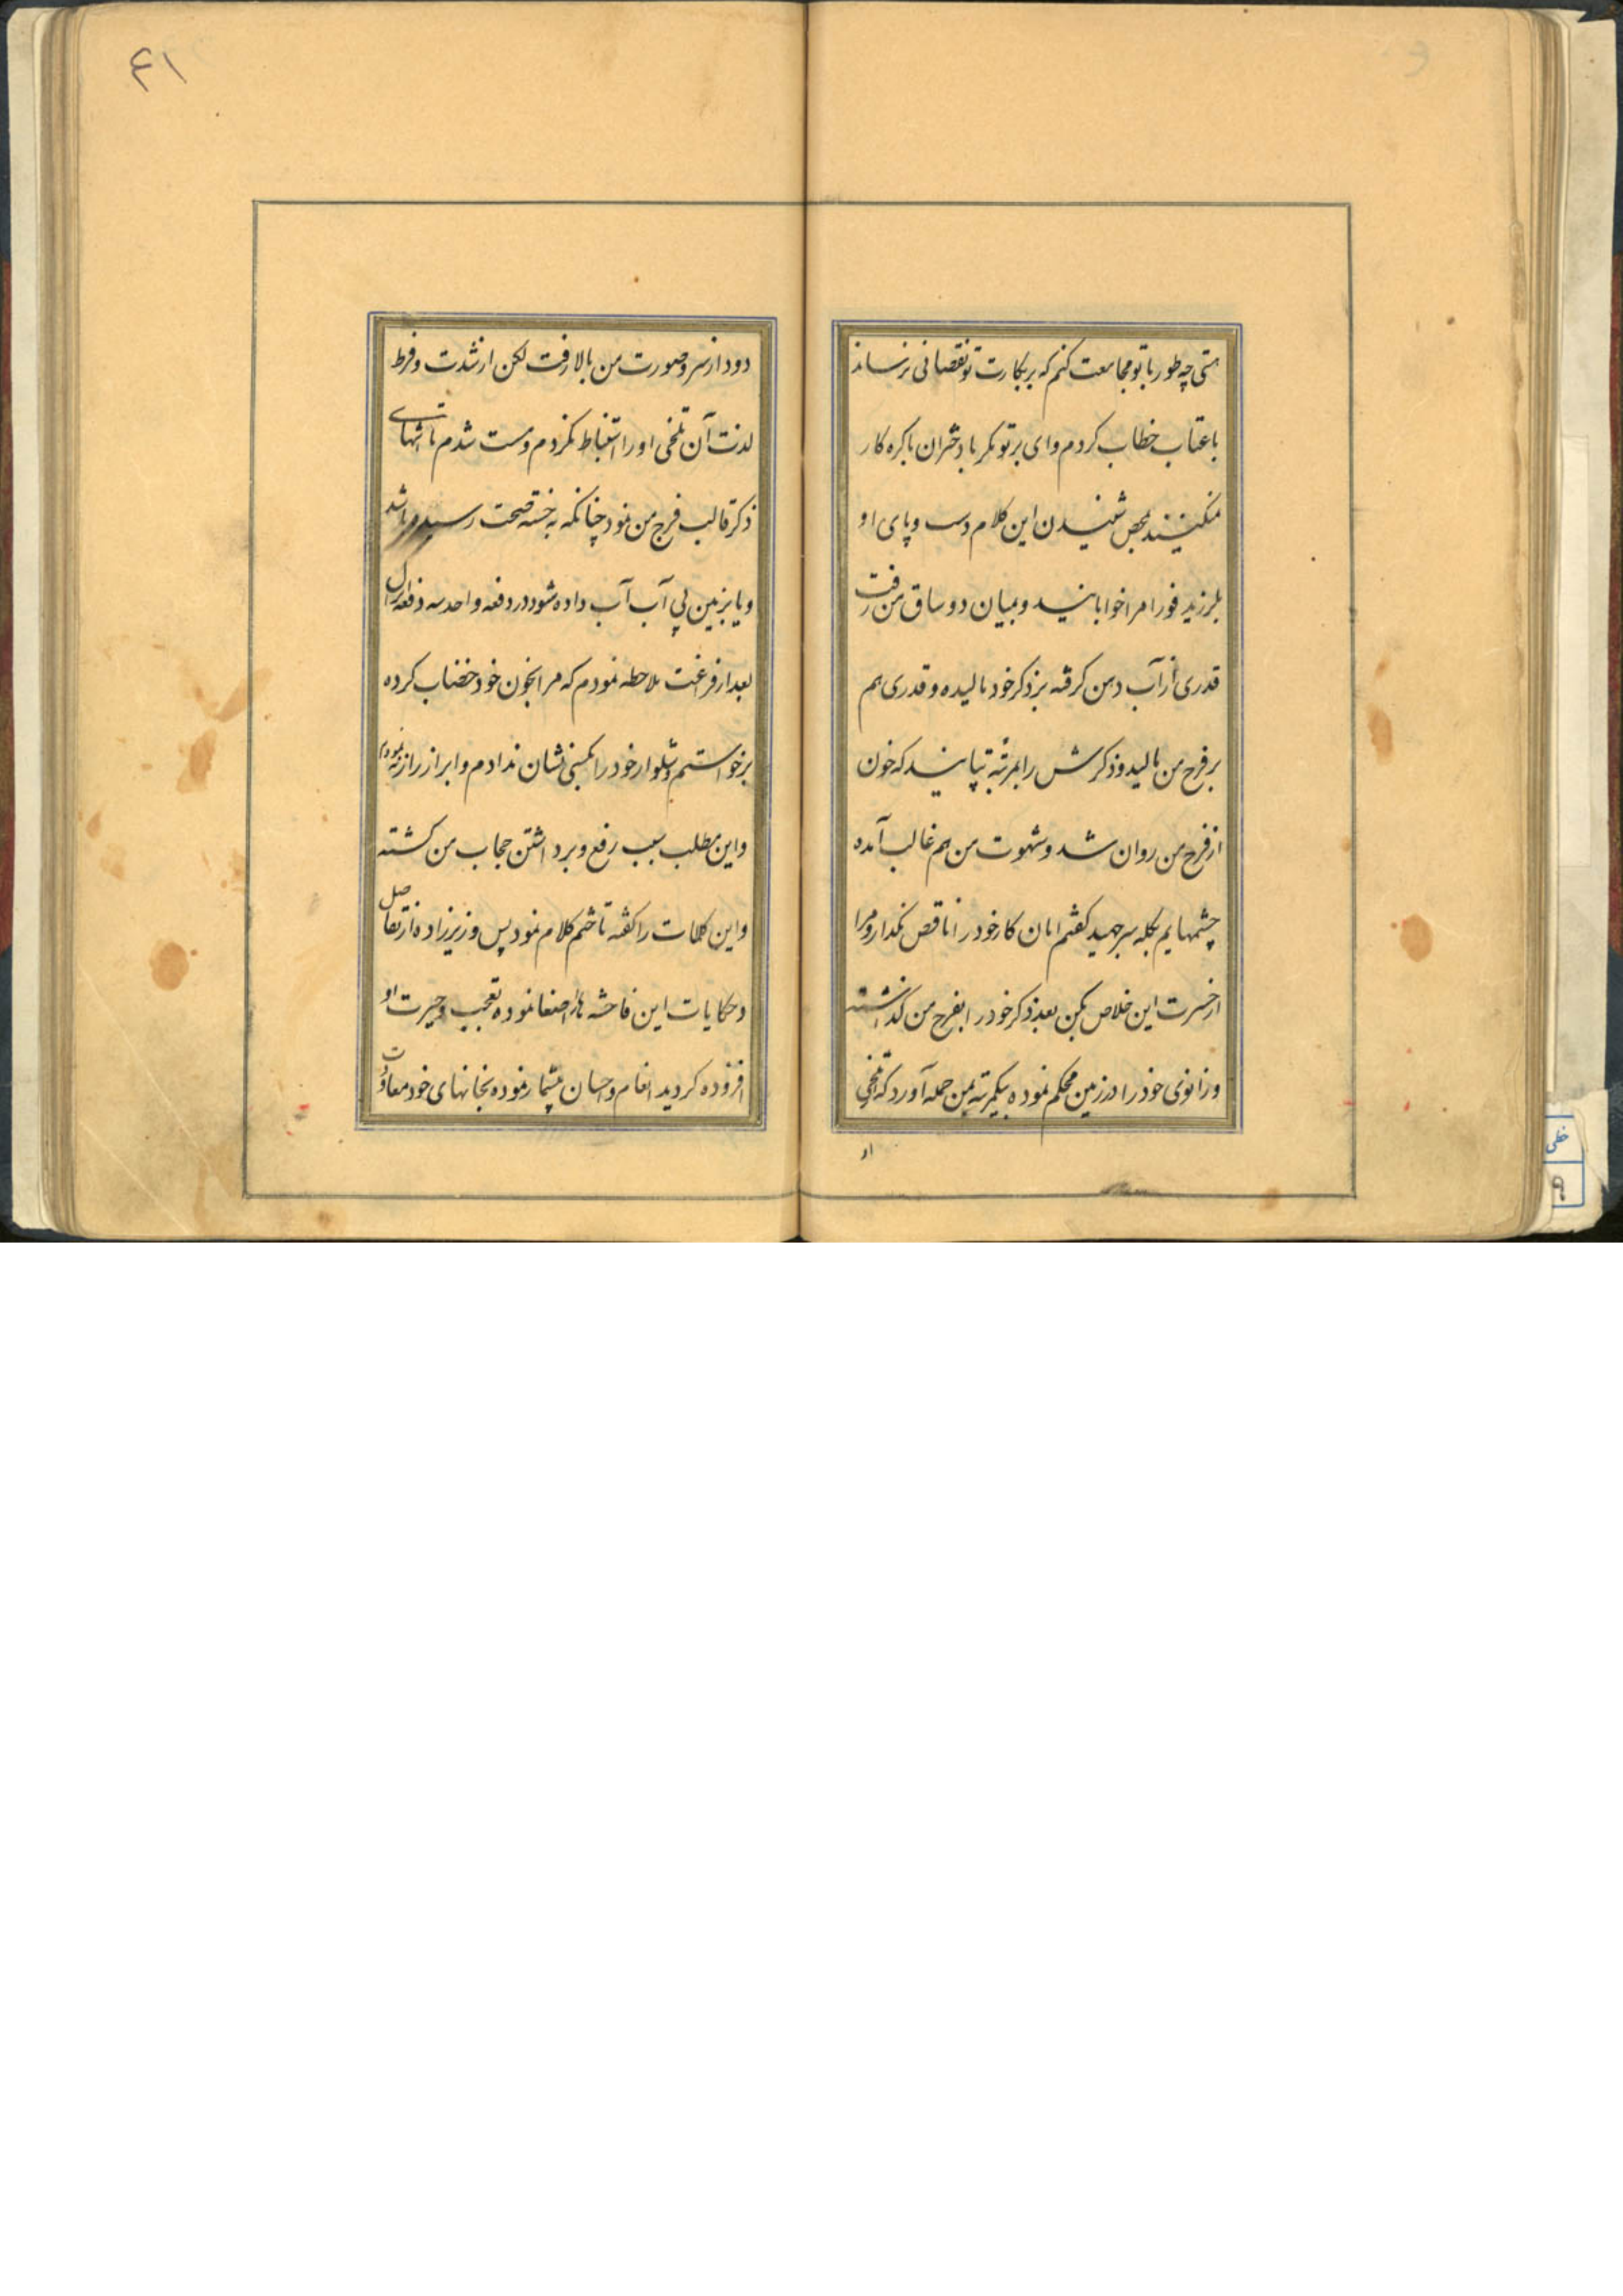 هستی چه طور با تو مجامعت کنم که بر بکارت تو نقصانی نرساند
با عتاب خطاب کردم وای بر تو مگر با دختران باکره کار
نمیکنند بمحض شنیدن این کلام دست و پای او
بلرزید فورا مرا خوابانید و بمیان دو ساق من رفت
قدری از آب دهن گرفته بر ذکر خود مالیده و قدری هم
بر فرج من مالید و ذکرش را بمرتبه تپانید که خون
از فرج من روان شد و شهوت من هم غالب آمده
چشمهایم بکله سر جهید گفتم امان کار خود را ناقص نگذار و مرا
از حسرت این خلاص بکن بعد ذکر خود را بفرج من گذاشته
و زانوی خود را در زمین محکم نموده بیکمرتبه بمن حمله آورد که تلخی
او
۴۱
دود از سر و صورت من بالا رفت لکن از شدت و فرط
لذت آن تلخی او را استنباط نکردم و مست شدم تا انتهای
ذکر قالب فرج من نمود چنانکه به خسته صحت رسیده باشد
و یا بزمین بی آب آب داده شود در دفعه واحد سه دفعه انزال
بعد از فراغت ملاحظه نمودم که مرا بخون خود خضاب کرده
برخواستم و شلوار خود را بکسی نشان ندادم و ابراز راز ننمودم
و این مطلب سبب رفع و برداشتن حجاب من گشته
و این کلمات را گفته تا ختم کلام نمود پس وزیرزاده از تفاصیل
و حکایات این فاحشه ها را اصغا نموده تعجب و حیرت او
افزوده گردید انعام و احسان بیشمار نموده بخانهای خود معاودت
خطی